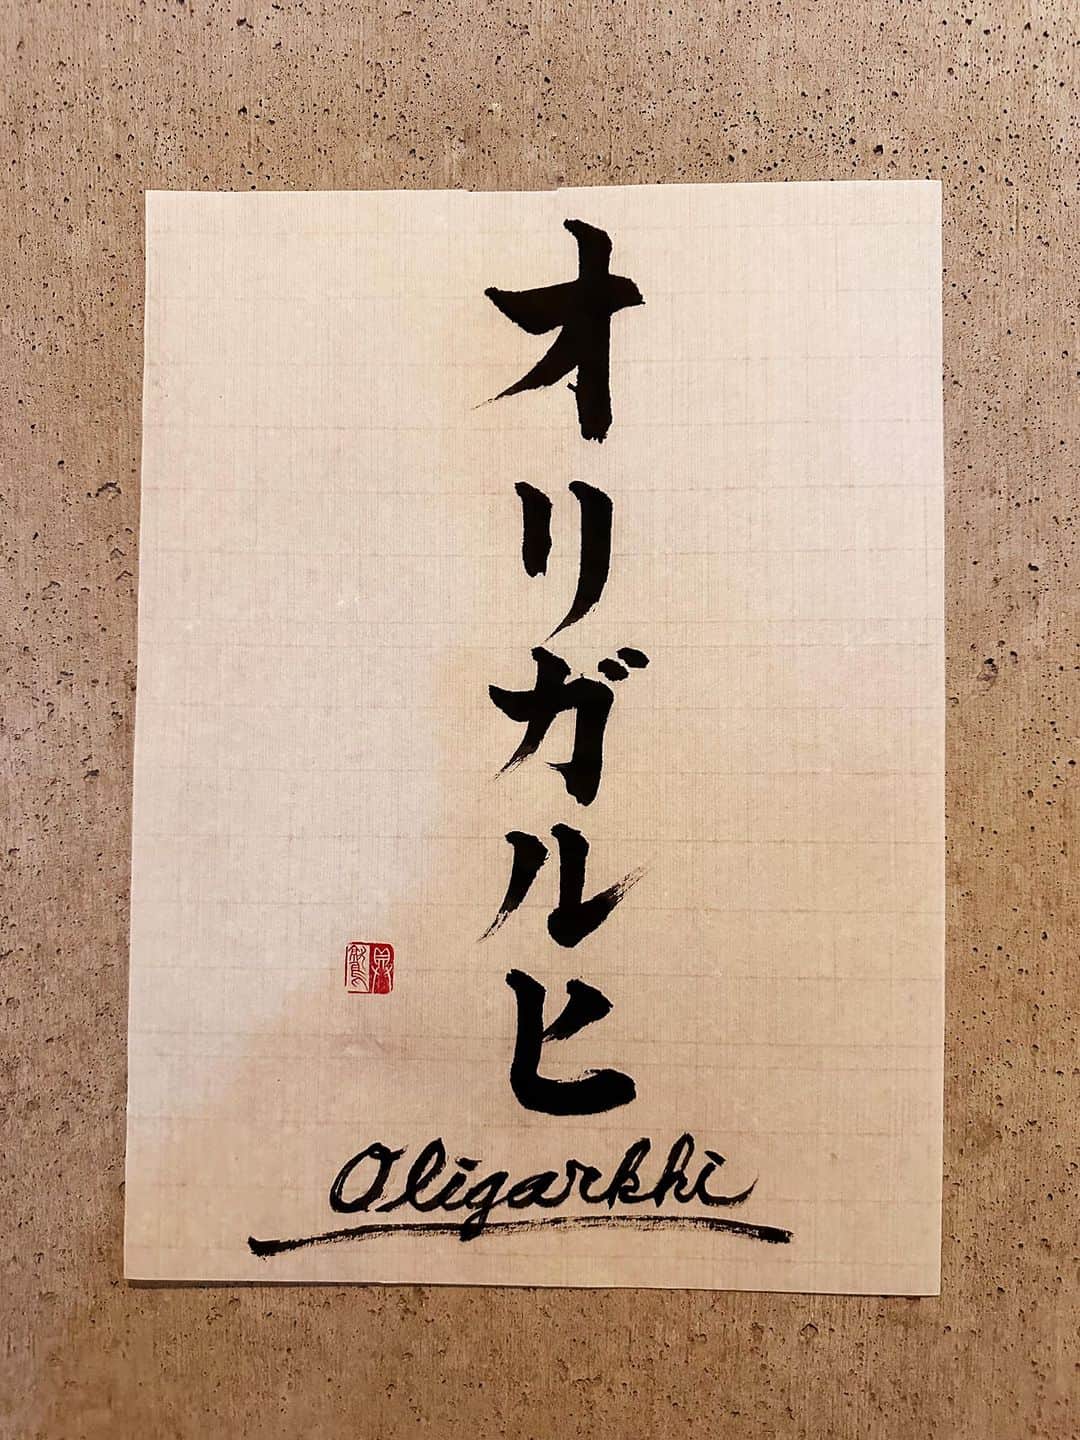 オリガルヒ
Oligarkhi